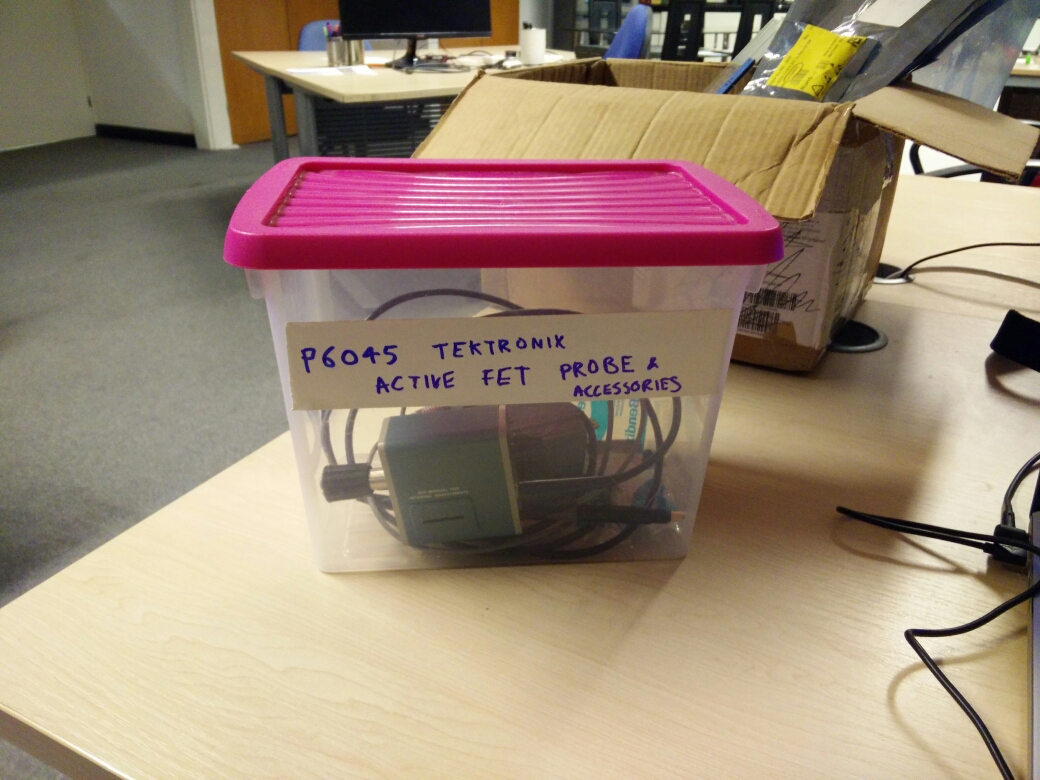 P6045 TEKTRONIX
ACTIVE FET PROBE &
ACCESSORIES